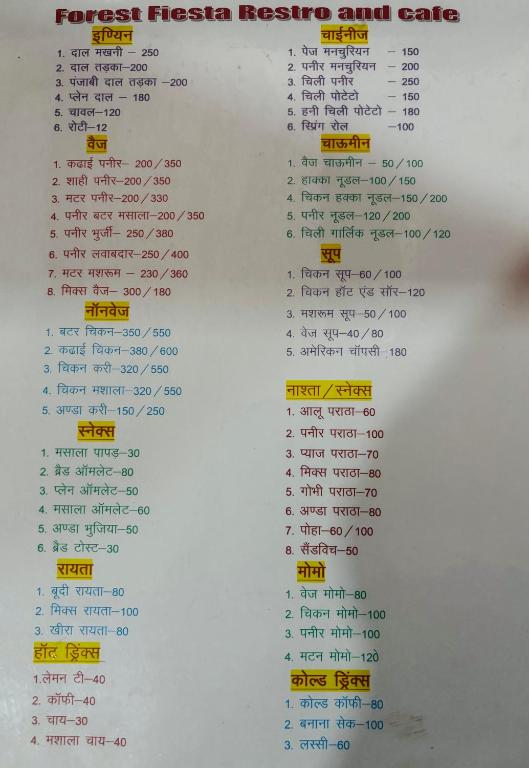 Forest Fiesta Restro and cafe
इण्यिन
1. दाल मखनी – 250
2. दाल तड़का–200
3. पंजाबी दाल तड़का –200
4. प्लेन दाल – 180
5. चावल–120
6. रोटी–12
वैज
1. कढाई पनीर– 200/350
2. शाही पनीर–200/350
3. मटर पनीर–200/330
4. पनीर बटर मसाला–200/350
5. पनीर भुर्जी– 250/380
6. पनीर लवाबदार–250/400
7. मटर मशरूम – 230/360
8. मिक्स वैज– 300/180
नॉनवेज
1. बटर चिकन–350/550
2. कढाई चिकन–380/600
3. चिकन करी–320/550
4. चिकन मशाला–320/550
5. अण्डा करी–150/250
स्नेक्स
1. मसाला पापड़–30
2. ब्रैड ऑमलेट–80
3. प्लेन ऑमलेट–50
4. मसाला ऑमलेट–60
5. अण्डा भुजिया–50
6. ब्रैड टोस्ट–30
रायता
1. बूदी रायता–80
2. मिक्स रायता–100
3. खीरा रायता–80
हॉट ड्रिंक्स
1.लेमन टी–40
2. कॉफी–40
3. चाय–30
4. मशाला चाय–40
चाईनीज
1. पेज मनचुरियन – 150
2. पनीर मनचुरियन – 200
3. चिली पनीर – 250
4. चिली पोटेटो – 150
5. हनी चिली पोटेटो – 180
6. स्प्रिंग रोल –100
चाऊमीन
1. वैज चाऊमीन – 50/100
2. हाक्का नूडल–100/150
4. चिकन हक्का नूडल–150/200
5. पनीर नूडल–120/200
6. चिली गार्लिक नूडल–100/120
सूप
1. चिकन सूप–60/100
2. चिकन हॉट एंड सॉर–120
3. मशरूम सूप–50/100
4. वेज सूप–40/80
5. अमेरिकन चॉपसी 180
नाश्ता/स्नेक्स
1. आलू पराठा–60
2. पनीर पराठा–100
3. प्याज पराठा–70
4. मिक्स पराठा–80
5. गोभी पराठा–70
6. अण्डा पराठा–80
7. पोहा–60/100
8. सैंडविच–50
मोमो
1. वेज मोमो–80
2. चिकन मोमो–100
3. पनीर मोमो–100
4. मटन मोमो–120
कोल्ड ड्रिंक्स
1. कोल्ड कॉफी–80
2. बनाना सेक–100
3. लस्सी–60